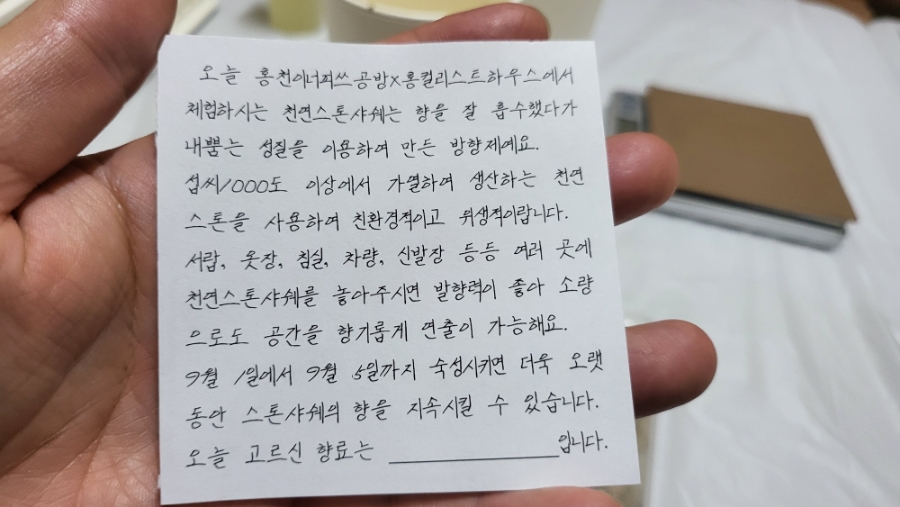 오늘 홍천이너피쓰공방x홍컬리스트하우스에서
체험하시는 천연스톤샤쉐는 향을 잘 흡수했다가
내뿜는 성질을 이용하여 만든 방향제예요.
섭씨1000도 이상에서 가열하여 생산하는 천연
스톤을 사용하여 친환경적이고 위생적이랍니다.
서랍, 옷장, 침실, 차량, 신발장 등등 여러 곳에
천연스톤샤쉐를 놓아주시면 발향력이 좋아 소량
으로도 공간을 향기롭게 연출이 가능해요.
9월 1일에서 9월 5일까지 숙성시키면 더욱 오랫
동안 스톤샤쉐의 향을 지속시킬 수 있습니다.
오늘 고르신 향료는 ____________입니다.